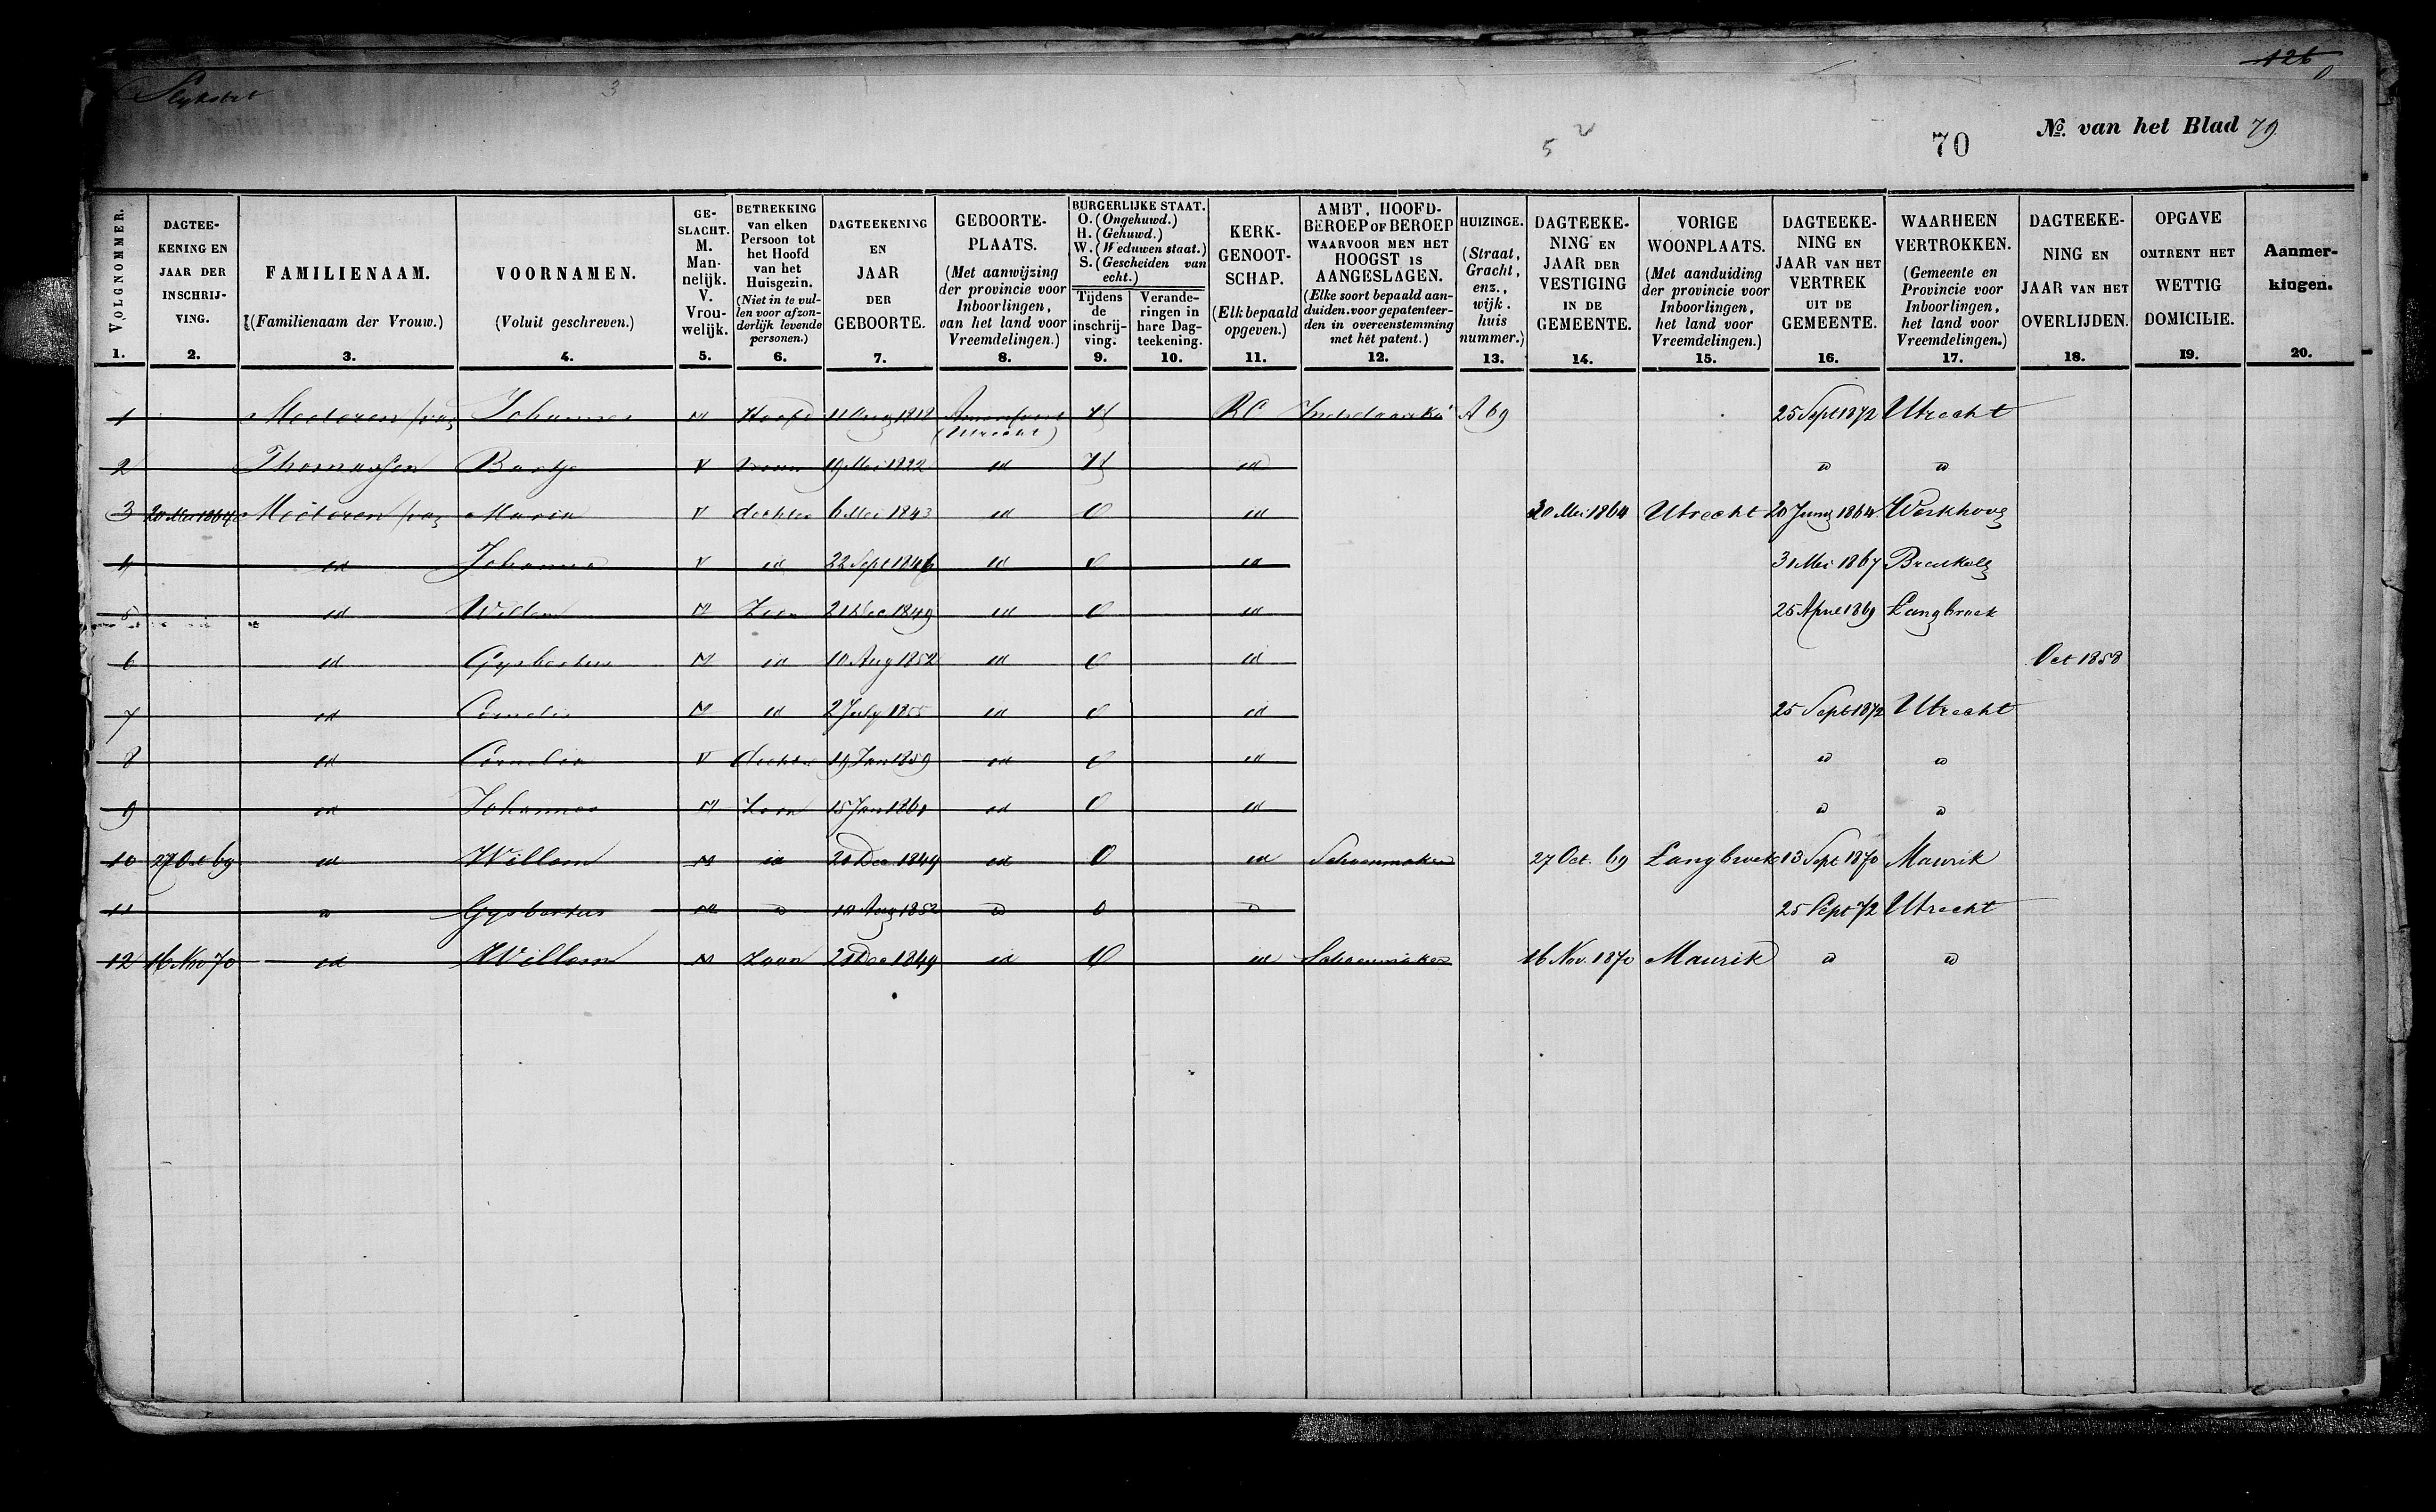 Slykstrt 3 126
5 2 70 No. van het Blad 79
VOLGNOMMER. 1.
DAGTEEKENING EN JAAR DER INSCHRIJVING. 2.
FAMILIENAAM. (Familienaam der Vrouw.) 3.
VOORNAMEN. (Voluit geschreven.) 4.
GESLACHT. M. Mannelijk. V. Vrouwelijk. 5.
BETREKKING van elken Persoon tot het Hoofd van het Huisgezin. (Niet in te vullen voor afzonderlijk levende personen.) 6.
DAGTEEKENING EN JAAR DER GEBOORTE. 7.
GEBOORTEPLAATS. (Met aanwijzing der provincie voor Inboorlingen, van het land voor Vreemdelingen.) 8.
BURGERLIJKE STAAT. O. (Ongehuwd.) H. (Gehuwd.) W. (Weduwen staat.) S. (Gescheiden van echt.)
Tijdens de inschrijving. 9.
Veranderingen in hare Dagteekening. 10.
KERKGENOOTSCHAP. (Elk bepaald opgeven.) 11.
AMBT, HOOFDBEROEP OF BEROEP WAARVOOR MEN HET HOOGST IS AANGESLAGEN. (Elke soort bepaald aanduiden. voor gepatenteerden in overeenstemming met hét patent.) 12.
HUIZINGE. (Straat, Gracht, enz., wijk. huis nummer.) 13.
DAGTEEKENING EN JAAR DER VESTIGING IN DE GEMEENTE. 14.
VORIGE WOONPLAATS. (Met aanduiding der provincie voor Inboorlingen, het land voor Vreemdelingen.) 15.
DAGTEEKENING EN JAAR VAN HET VERTREK UIT DE GEMEENTE. 16.
WAARHEEN VERTROKKEN. (Gemeente en Provincie voor Inboorlingen, het land voor Vreemdelingen.) 17.
DAGTEEKENING EN JAAR VAN HET OVERLIJDEN. 18.
OPGAVE OMTRENT HET WETTIG DOMICILIE. 19.
Aanmerkingen. 20.
1 Mecteren (van Johannes M Hoofd 11 Aug 1818 Amersfoort (Utrecht) H RC A 69 25 Sept 1872 Utrecht
2 Thomassen Baatje V vrouw 19 Mei 1822 id H id id id
3 20 Mei 1864 Mecteren (van Maria V dochter 6 Mei 1843 id O id 20 Mei 1864 Utrecht 20 Juny 1864 Werkhoven
4 id Johanna V id 22 Sept 1846 id O id 31 Mei 1867 Breukelen
5 id Willem M Zoon 21 Dec 1849 id O id 25 April 1869 Langbroek
6 id Gysbertus M id 10 Aug 1852 id O id Oct 1858
7 id Cornelis M id 2 July 1855 id O id 25 Sept 1872 Utrecht
8 id Cornelia V dochter 19 Jan 1859 id O id id id
9 id Johannes M Zoon 15 Jan 1861 id O id id id
10 27 Oct 69 id Willem M id 20 Dec 1849 id O id Schoenmaker 27 Oct. 69 Langbroek 13 Sept 1870 Maurik
11 id Gysbertus M id 10 Aug 1852 id O id 25 Sept 72 Utrecht
12 16 Nov 70 id Willem M Zoon 20 Dec 1849 id O id Schoenmaker 16 Nov. 1870 Maurik id id